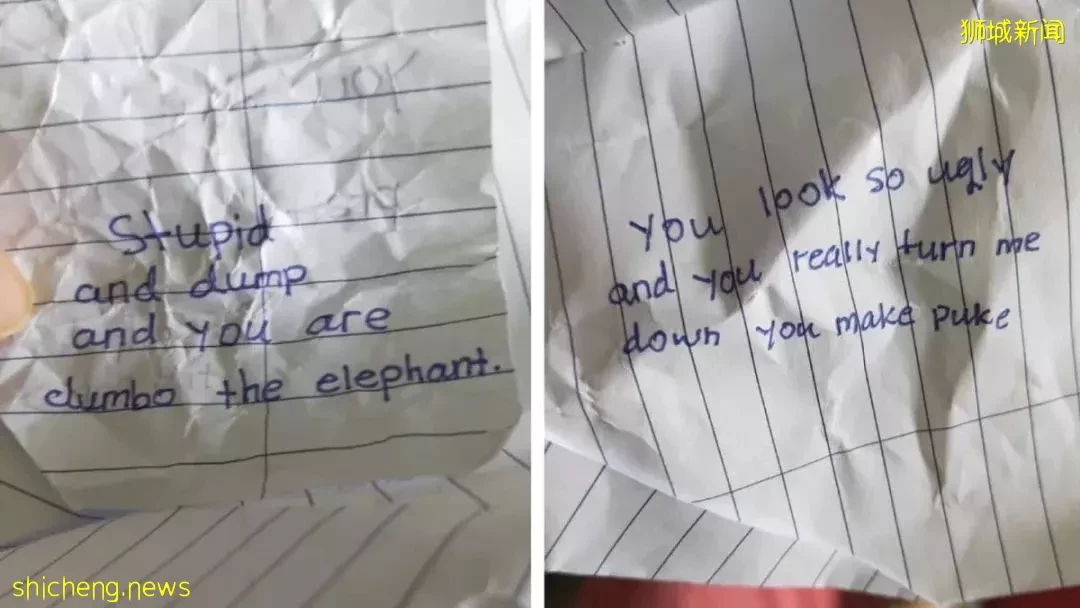 狮城新闻
Stupid
and dump
and you are
dumbo the elephant.
you look so ugly
and you really turn me
down you make puke
shicheng.news